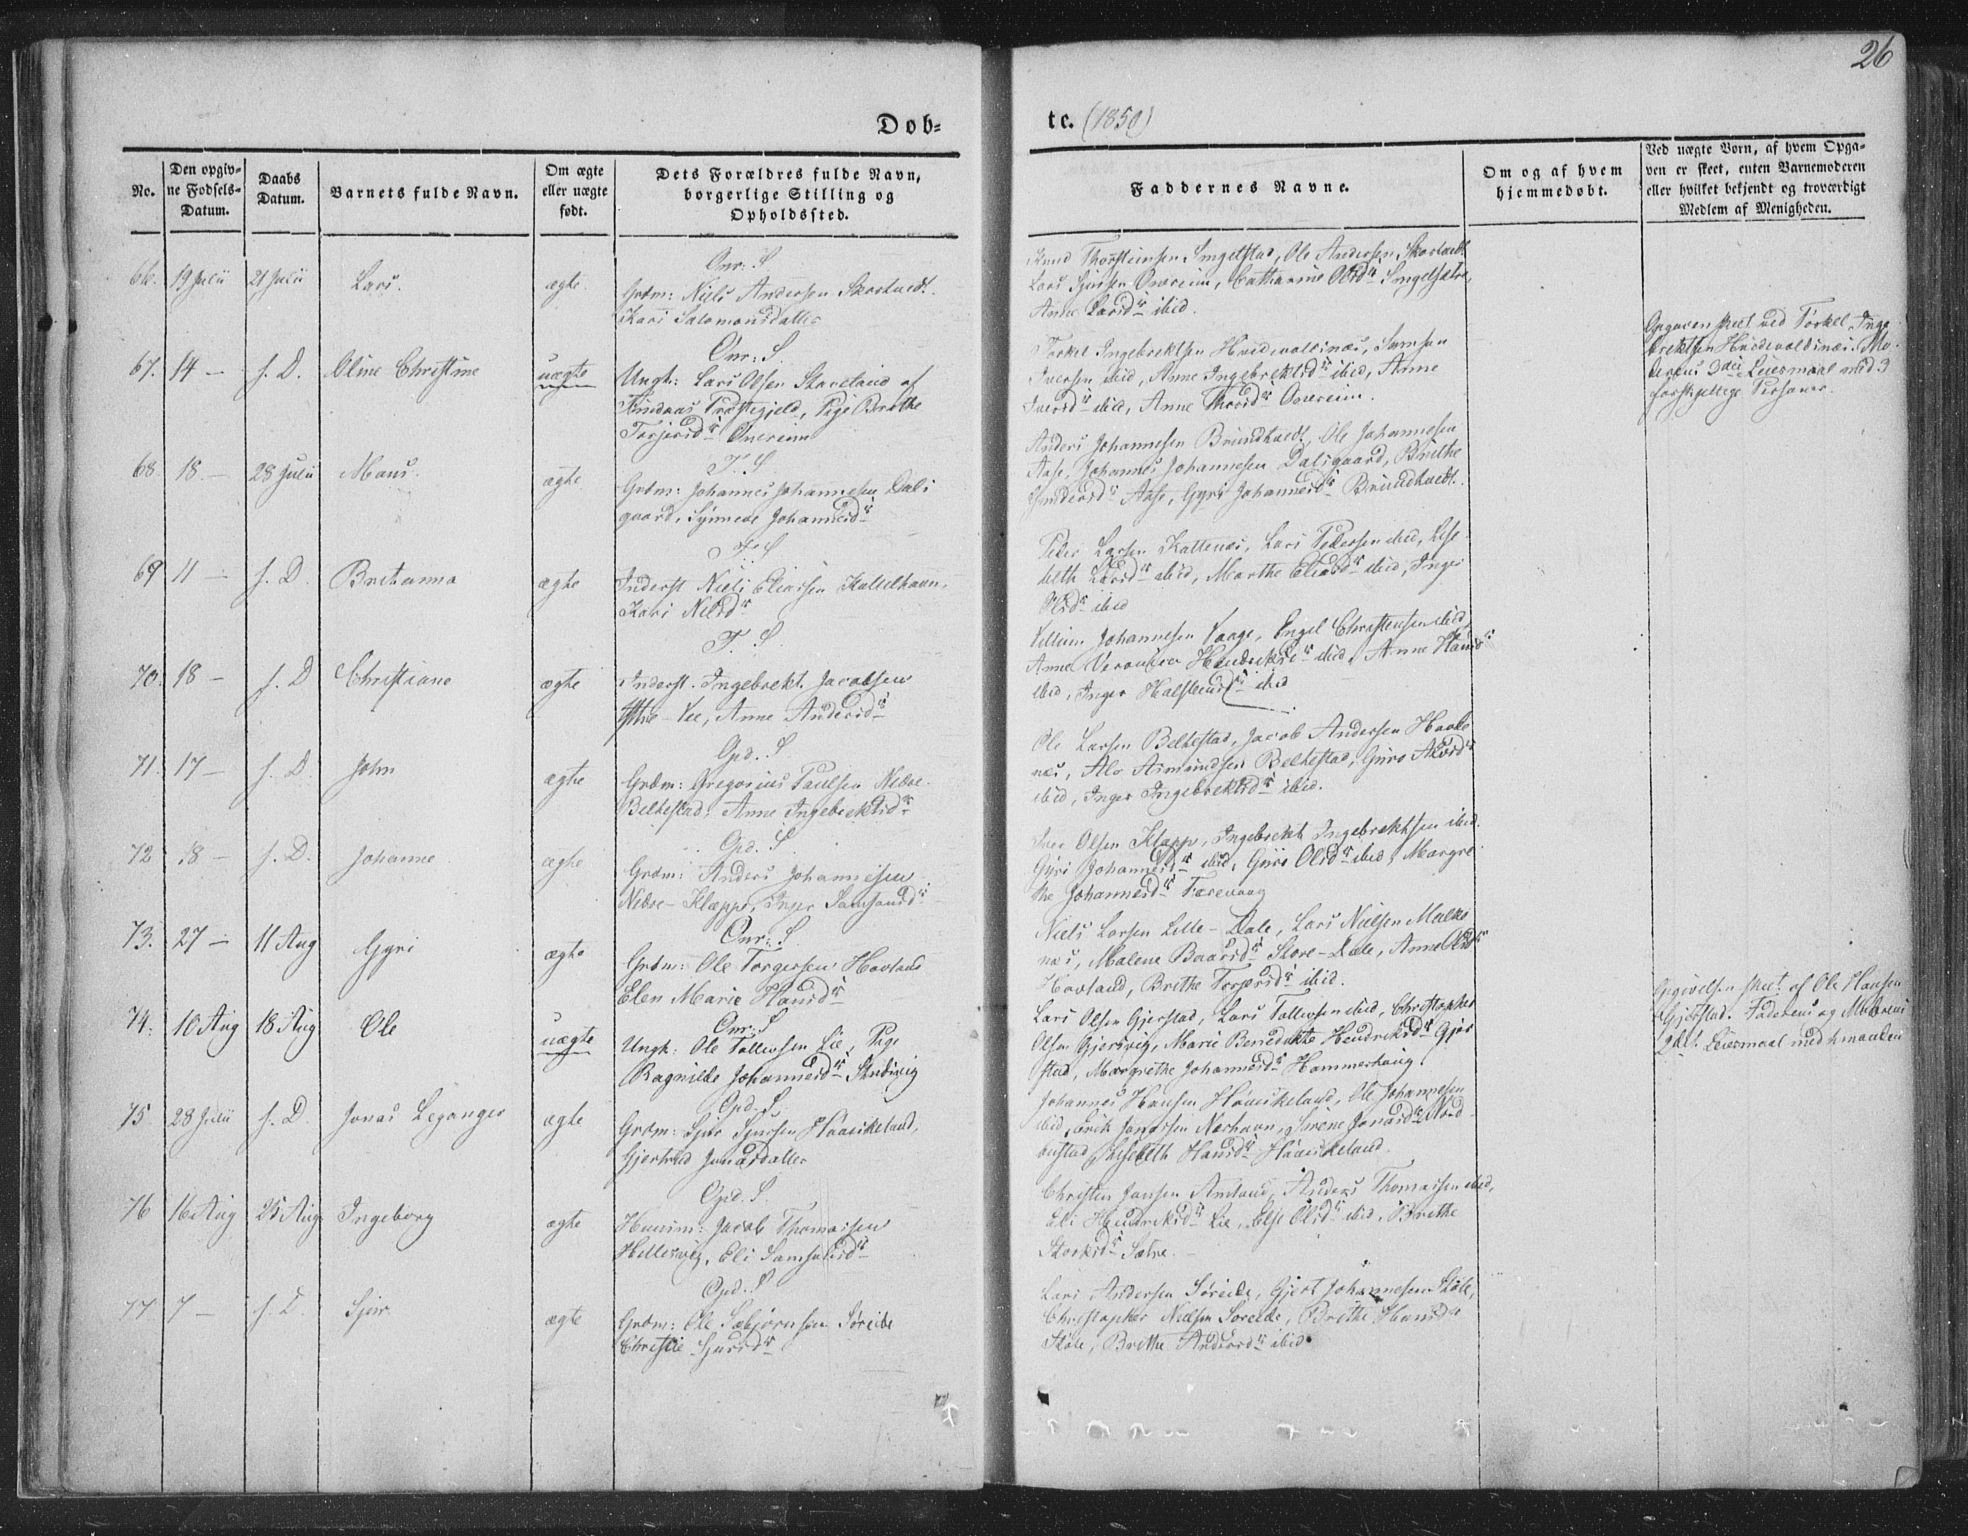 26
Dob-
te. (1850)
No.
Den opgiv-
ne Fødsels-
Datum.
Daabs
Datum.
Barnets fulde Navn.
Om ægte
eller uægte
født.
Dets Forældres fulde Navn,
borgerlige Stilling og
Opholdssted.
Faddernes Navne.
Om og af hvem
hjemmedøbt.
Ved uægte Børn, af hvem Opga-
ven er skeet, enten Barnemoderen
eller hvilket bekjendt og troværdigt
Medlem af Menigheden.
66. 19 Julii 21 Julii Lars. ægte.
Onr: S
Grdm: Niels Andersen Skartvedt.
Kari Salomonsdatter
Knud Thorsteinsen Singelstad, Ole Andersen Skartvedt
Lars Sjursen Onereim, Catharine Olsdr Singelsætre,
Anne Larsdr ibid.
67. 14 — s. D. Oline Christine uægte
Onr: S.
Ungk: Lars Olsen Skaveland af
Findaas Præstegjeld, Pige Brithe
Torjersdr Onereim
Torkel Ingebrektsen Hvidevoldsnæs, Samson
Iversen ibid, Anne Ingebrektsdr ibid, Anne
Iversdr ibid, Anne Thorsdr Onereim.
Opgaven skeet ved Torkel Inge
brektsen Hvidevoldsnæs. Mo
derens 3die Leiermaal med 3
forskjellige Personer.
68 18. — 28 Julii Mons. ægte
F. S.
Grdm: Johannes Johannesen Dals
gaard, Synneve Johannesdr
Anders Johannesen Brundtvedt, Ole Johannesen
Aase, Johannes Johannesen Dalsgaard, Brithe
Aase, Gyri Johannesdr Brundtvedt.
69 11 — s. D. Britanna ægte
F. S
Inderst Niels Eliassen Kattelhavn.
Kari Nilsdr
Peder Larsen Kattenæs, Lars Pedersen ibid, Lise
beth Larsdr ibid, Marthe Eliasdr ibid, Inger
Olsdr ibid
70. 18 — s. D Christiane ægte
F. S.
Inderst. Ingebrekt Jacobsen
Ytre-Vee, Anne Andersdr
Villum Johannesen Vaage, Engel Christensen ibid,
Anne Veronica Hendriksdr ibid, Anne Hansdr
ibid, Inger Halsteinsdr ibid
71. 17 — s. D. John ægte
Opd. S
Grdm: Gregorius Paulsen Nedre-
Beltestad, Anne Ingebrektsdr
Ole Larsen Beltestad, Jacob Andersen Havks
næs, Alv Asmundsen Beltestad, Guro Alvsdr
ibid, Inger Ingebrektsdr ibid.
72 18 — s. D. Johanne ægte
Opd. S.
Grdm: Anders Johannesen
Nedre-Klæppe, Inger Samsonsdr
Iver Olsen Klæppe, Ingebrekt Ingebrektsen ibid.
Gyri Johannesdr ibid, Guro Olsdr ibid, Margre
the Johannesdr Færevaag
73. 27 — 11 Aug Gyri ægte
Onr: S
Grdm: Ole Torgersen Hovland
Elen Marie Hansdr
Niels Larsen Lille-Dale, Lars Nielsen Malke
næs, Malene Baarsdr Store-Dale, Anne Olsdr
Hovland, Brithe Torjersdr ibid.
74. 10 Aug 18 Aug Ole uægte
Onr: S
Ungk: Ole Tollevsen Lie, Pige
Ragnilde Johannesdr Sandvig
Lars Olsen Gjerstad, Lars Tollevsen ibid, Christopher
Olsen Gjersvig, Marie Benedikte Hendriksdr Gjer
stad, Margrethe Johannesdr Hammerhaug.
Opgivelsen skeet af Ole Hansen
Gjerstad. Faderens og Moderens
2det Leiermaal med hinanden
75 28 Julii s. D. Jonas Leganger ægte
Opd. S.
Grdm: Sjur Sjursen Haaviskeland,
Gjertrud Jonasdatter
Johannes Hansen Haaviskeland, Ole Johannesen
ibid, Erik Jonassen Nærhavn, Sirene Jonasdr Nord
bustad, Lisebeth Hansdr Haaviskeland.
76 16 Aug 25 Aug Ingeborg ægte
Opd. S.
Huusm: Jacob Thomassen
Hellesvig, Eli Samsonsdr
Christen Jansen Amland, Anders Thomassen ibid,
Eli Hendriksdr Lie, Else Olsdr ibid, Brithe
Storksdr Sætre.
77. 7 — s. D. Sjur. ægte
Opd. S
Grdm: Ole Sæbjørnsen Søreide
Christie Sjursdr
Lars Andersen Søreide, Gjert Johannesen Støle,
Christopher Nielsen Søreide, Brithe Hansdr
Støle, Brithe Andersdr ibid.